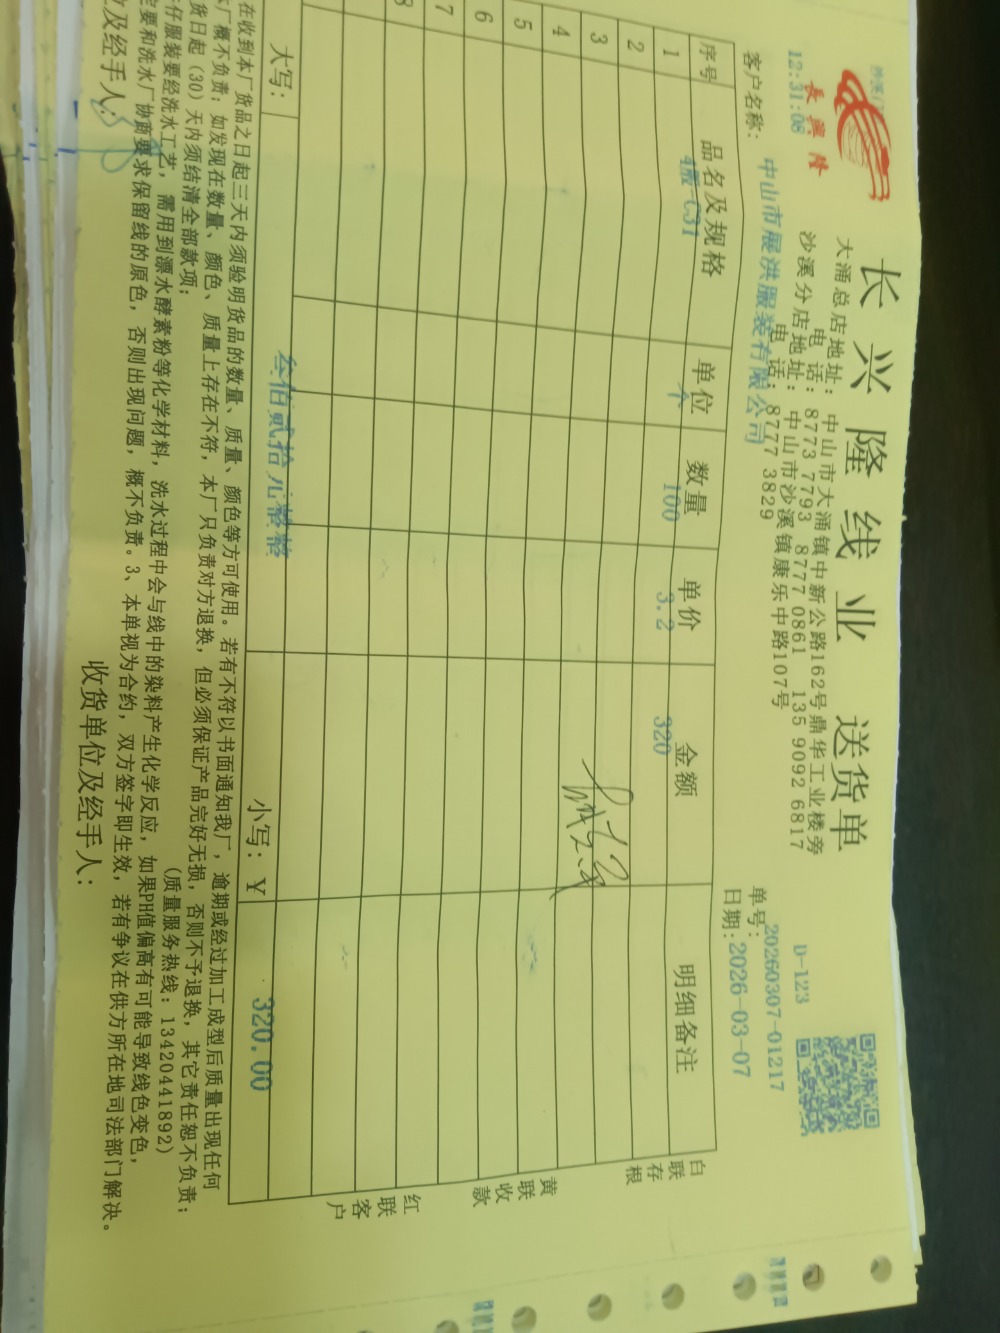 长兴隆线业 送货单
長興隆
12:31:08
大涌总店地址:中山市大涌镇中新公路162号鼎华工业楼旁
电话:8773 7793 8777 0861 135 9092 6817
沙溪分店地址:中山市沙溪镇康乐中路107号
电话:8777 3829
D-123
单号:20260307-01217
客户名称:中山市展洪服装有限公司
日期:2026-03-07
序号 品名及规格 单位 数量 单价 金额 明细备注
1 个 100 3.2 320
2
3
4
5
6
7
8
大写:叁佰贰拾元整整 小写:¥ 320.00
白联存根
黄联收款
红联客户
在收到本厂货品之日起三天内须验明货品的数量、质量、颜色等方可使用。若有不符以书面通知我厂,逾期或经过加工成型后质量出现任何
厂概不负责;如发现在数量、颜色、质量上存在不符,本厂只负责对方退换,但必须保证产品完好无损,否则不予退换,其它责任恕不负责;
货日起(30)天内须结清全部款项; (质量服务热线:13420441892)
仔服装要经洗水工艺,需用到漂水酵素粉等化学材料,洗水过程中会与线中的染料产生化学反应,如果PH值偏高有可能导致线色变色,
要和洗水厂协商要求保留线的原色,否则出现问题,概不负责。3、本单视为合约,双方签字即生效,若有争议在供方所在地司法部门解决。
及经手人: 收货单位及经手人: